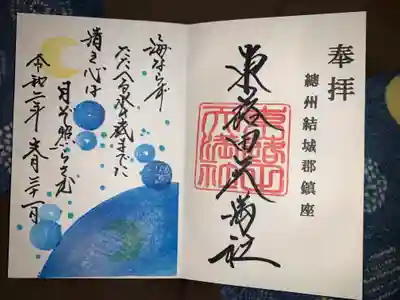 奉拝
總州結城郡鎮座
東蕗田天満社
海ならず
たたへる水の底までに
清き心は
月ぞ照らさむ
令和二年